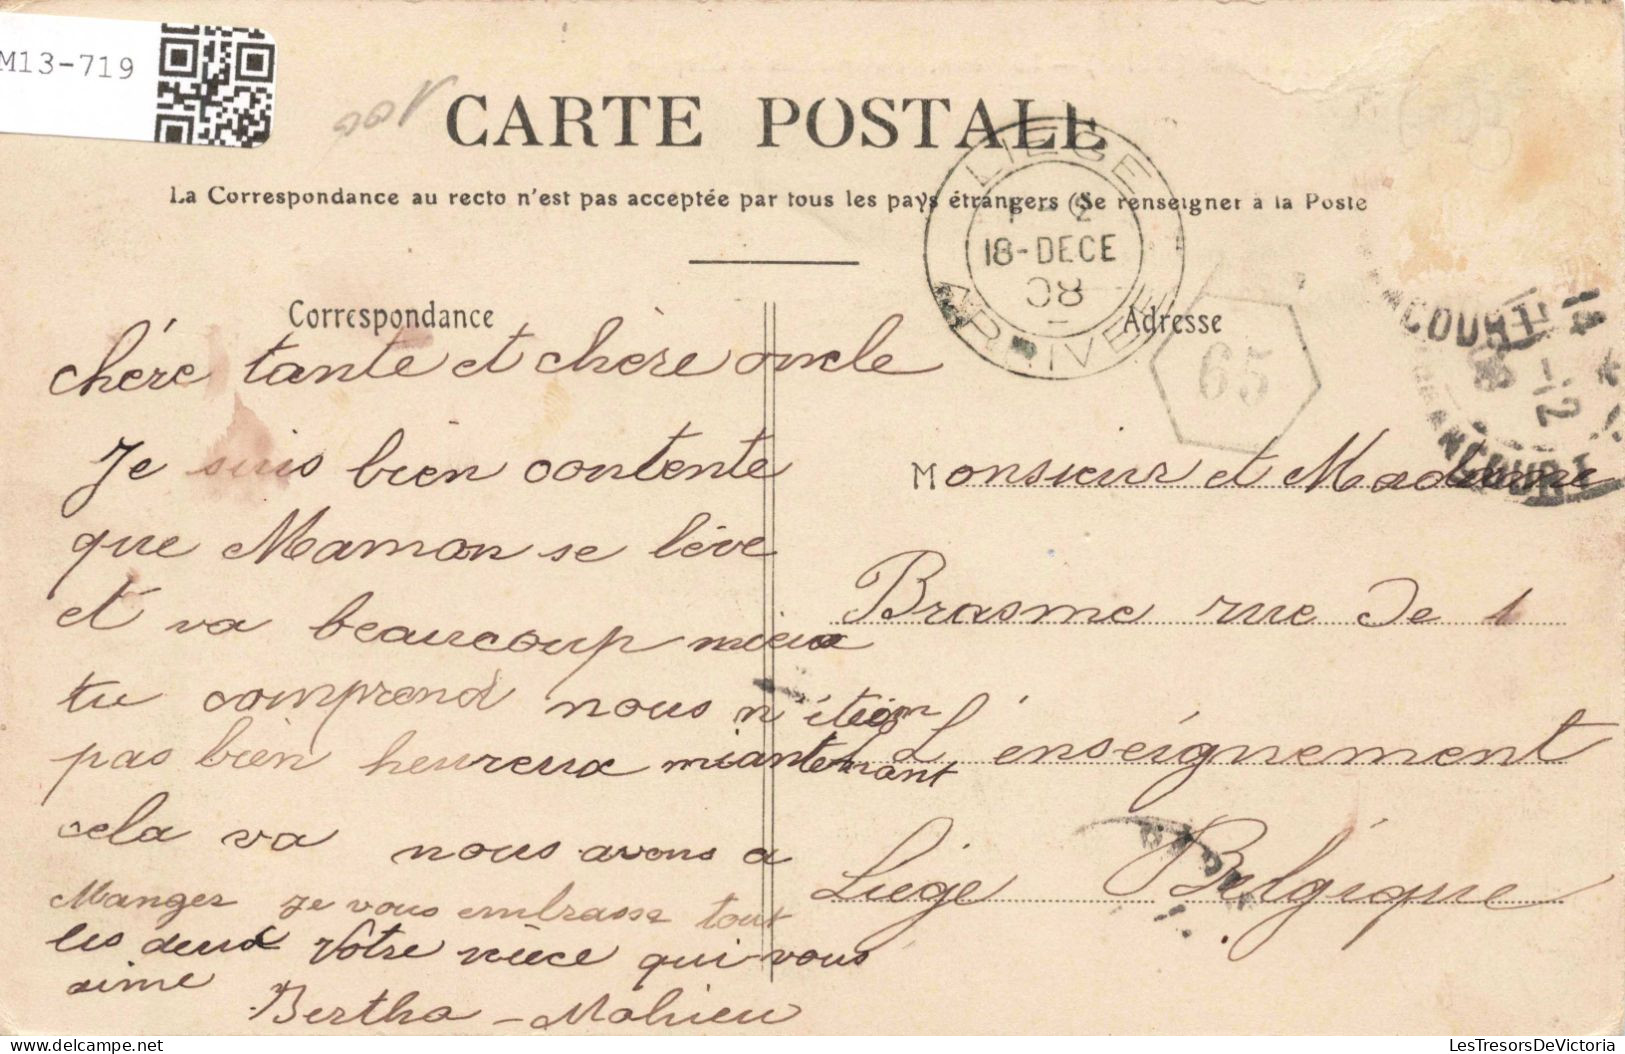 M13-719
CARTE POSTALE
La Correspondance au recto n'est pas acceptée par tous les pays étrangers (Se renseigner à la Poste
LIEGE
18-DECE
08
ARRIVEE
65
Correspondance
Adresse
COURT
COURT
chére tante et chère oncle
Je suis bien contente
que Maman se lève
et va beaucoup mieux
tu comprend nous n'étion
pas bien heureux miantemant
cela va nous avons a
Manger je vous embrasse tout
les deux Votre nièce qui vous
aime
Bertha - Mahieu
Monsieur et Madame
Brasme rue de
L'énseignement
Liège Belgique
delcampe.net
LesTresorsDeVictoria